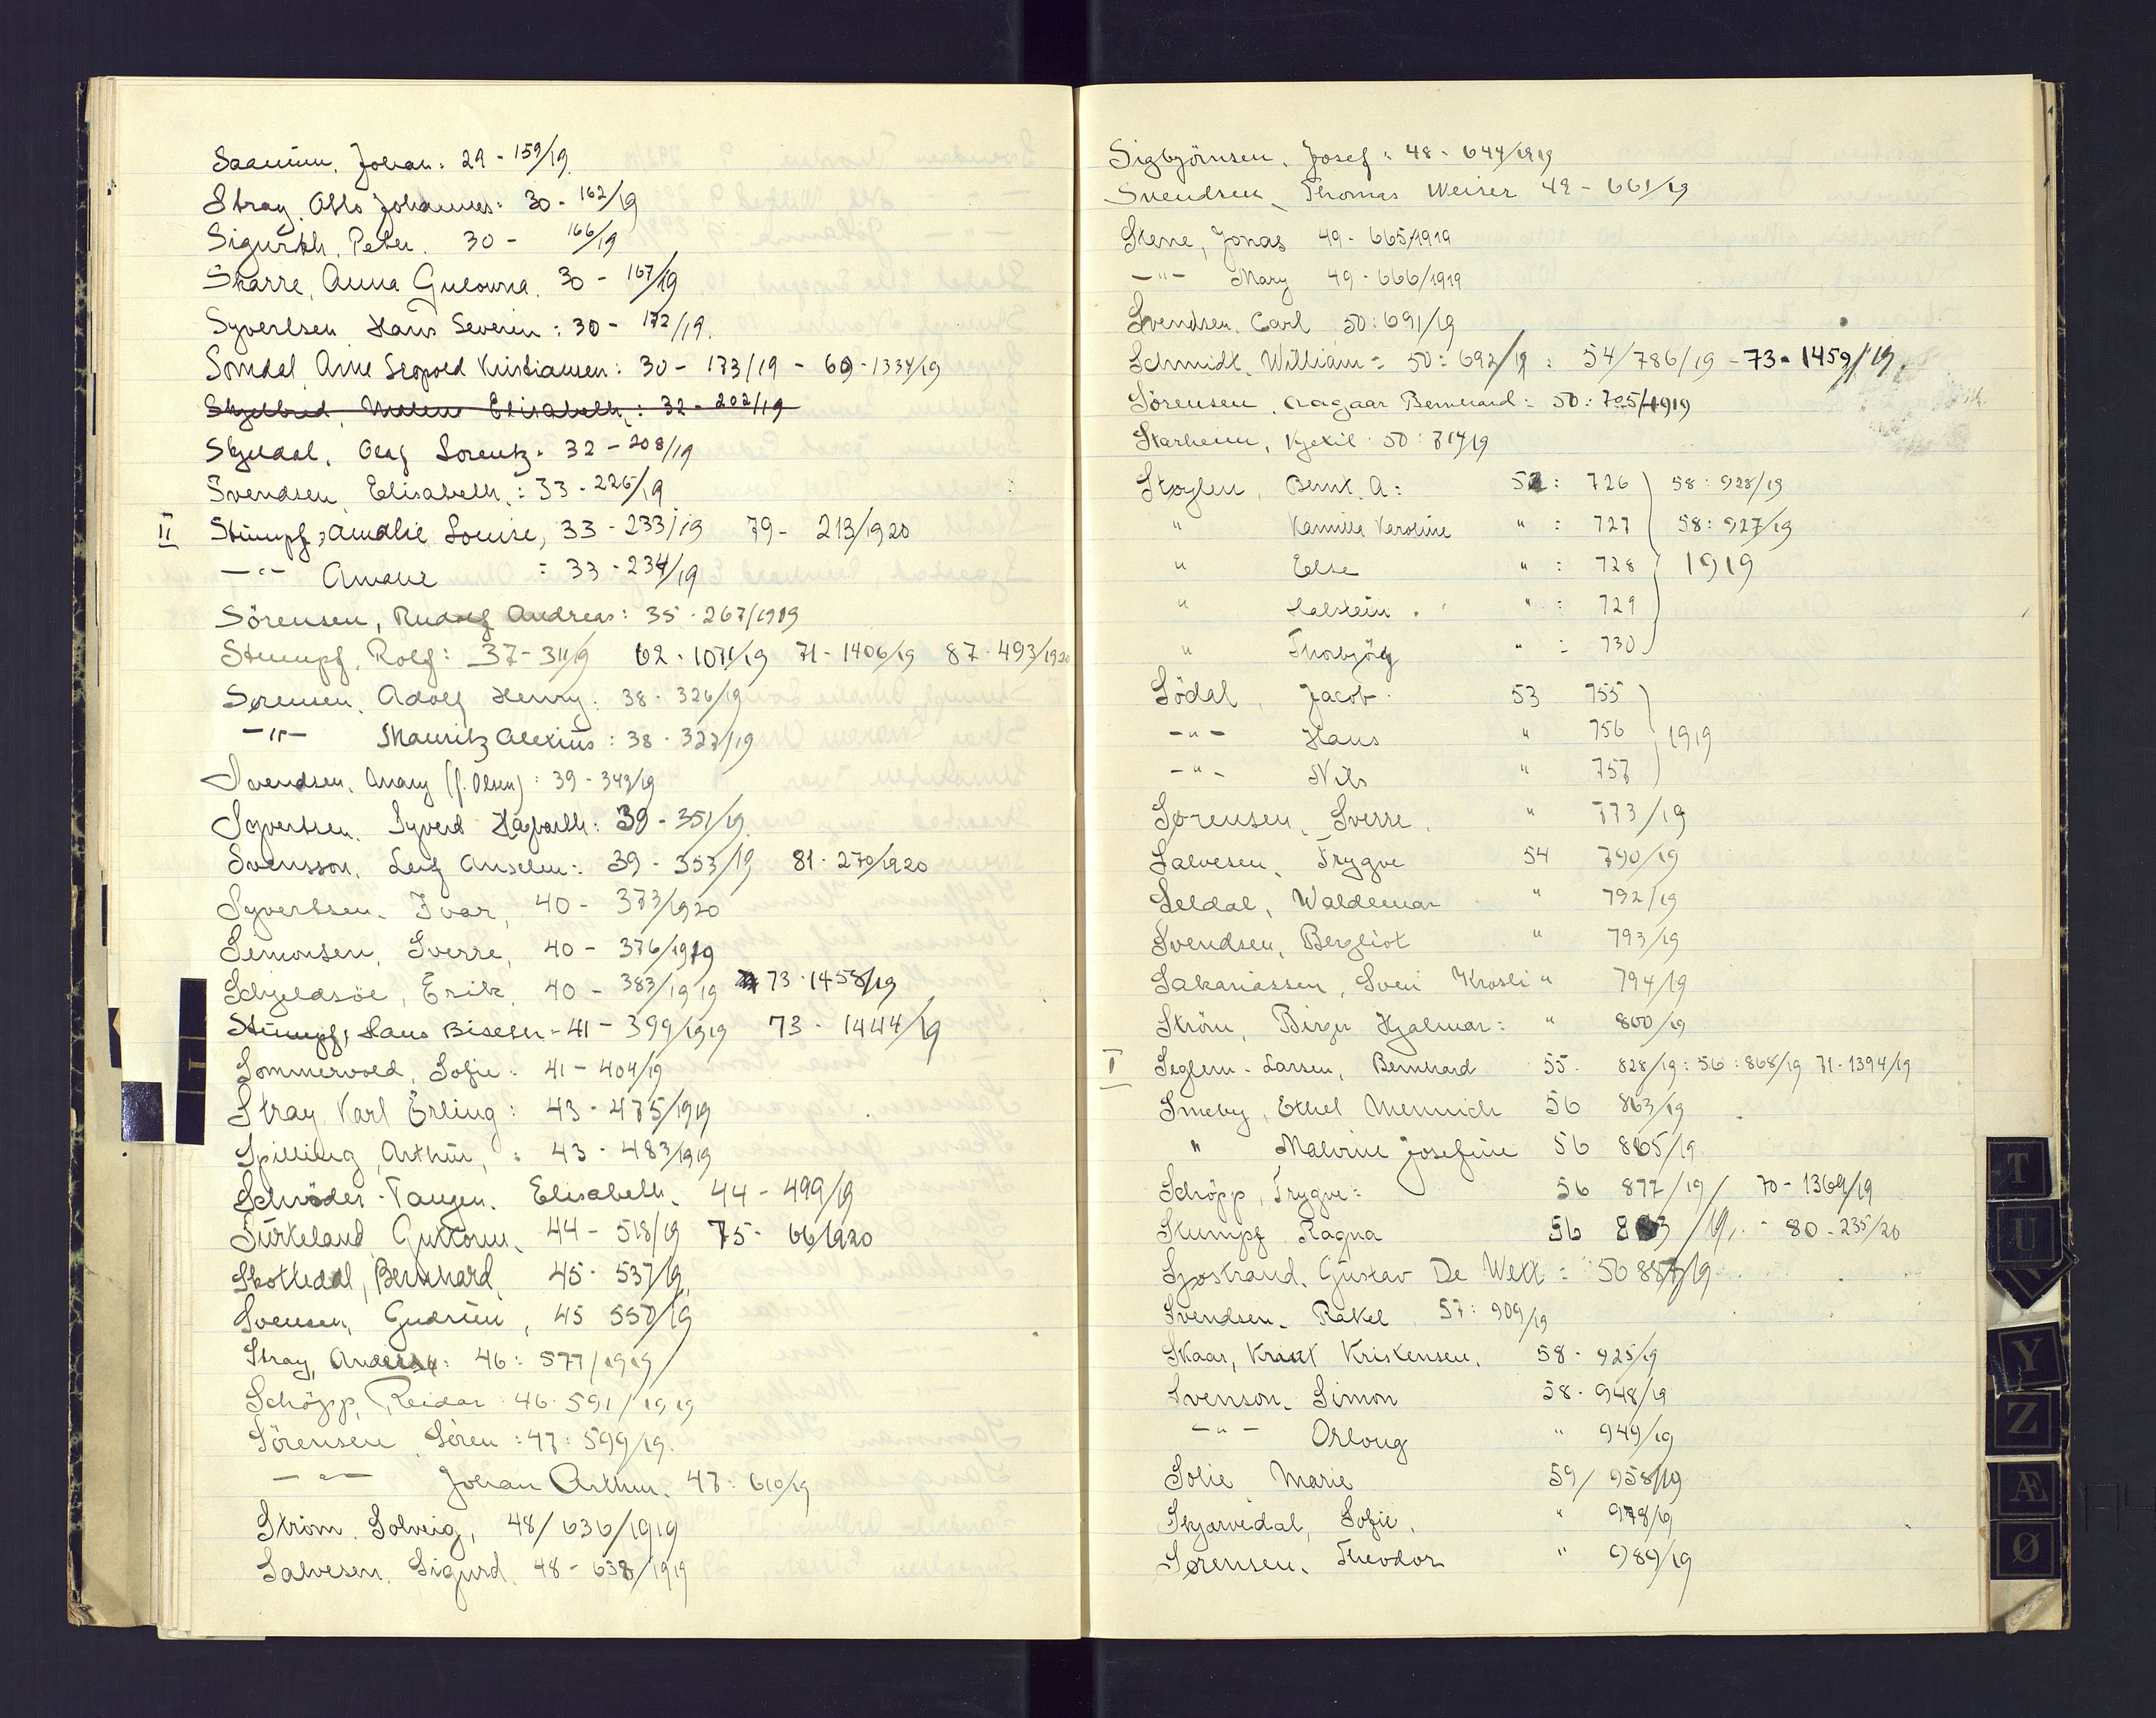 Saanum, Johan: 29 - 159/19.
Stray, Otto Johannes: 30 - 162/19
Sigurth, Peter. 30 - 166/19
Skarre, Anna Gulowna. 30 - 167/19
Syvertsen Hans Severin: 30 - 172/19.
Somdal Arne Leopold Kristiansen: 30 - 173/19 - 69 - 1334/19
Skjelbred, Malene Elisabeth: 32 - 202/19
Skjeldal, Olaf Lorentz. 32 - 208/19
Svendsen, Elisabeth,: 33 - 226/19
II Stumpf, Amalie Louise, 33 - 233/19 79 - 213/1920
-"- Amalie : 33 - 234/19
Sörensen, Rudolf Andreas: 35 - 267/1919
Stumpf, Rolf: 37 - 311/19 62 - 1071/19 71 - 1406/19 87 - 493/1920
Sørensen, Adolf Henry: 38 - 326/19
-"- Mauritz Alexius: 38 - 327/19
Svendsen, Anany (f. Olsen): 39 - 343/19
Syvertsen, Syverd Hagbarth: 39 - 351/19.
Svensson, Leif Anselm: 39 - 353/19 81 - 270/1920
Syvertsen. Ivar, 40 - 373/1920
Simonsen, Sverre, 40 - 376/1919
Schjeldsöe, Erik, 40 - 383/1919 73 - 1458/19
Stumpf, Hans Biseth - 41 - 399/1919 73 - 1444/19
Sommervold, Sofie. 41 - 404/19
Stray, Karl Erling: 43 - 475/1919
Spilling, Arthur,: 43 - 483/1919
Schröder-Tangen. Elisabeth. 44 - 499/19
Surkeland Guttorm. 44 - 518/19 75 - 66/1920
Skottedal, Bernhard, 45 - 537/19.
Svensen, Gudrun, 45 550/19
Stray, Anders: 46: 577/1919
Schöpp, Reidar: 46 - 591/1919
Sörensen, Sören: 47: 599/19.
-"- Johan Arthur. 47: 610/19
Ström. Solveig, 48/636/1919
Salvesen. Sigurd. 48 - 638/1919
Sigbjörnsen, Josef: 48 - 644/1919
Svendsen, Thomas Weiser 49 - 661/19
Stene, Jonas 49 - 665/1919
-"- Mary 49 - 666/1919
Svendsen. Carl 50: 691/19
Schmidt, William: 50: 692/19: 54/786/19 - 73 - 1459/19.
Sörensen, Aagaar Bernhard: 50: 705/1919
Starheim, Kjetil: 50: 714/19
Stoylen, Bernt. A: 52: 726 58: 928/19
" Kamilla Karoline ": 727 58: 927/19
" Else ": 728 1919
" Halstein. ": 729
" Thorbjörg ": 730
Södal, Jacob. 53 755
-"- Hans " 756 1919
-"- Nils " 757
Sørensen, Sverre. " 773/19
Salvesen, Trygve 54 790/19
Seldal, Waldemar " 792/19
Svendsen, Bergliot " 793/19
Sakariassen, Sven Krosli " 794/19
Ström, Birger Hjalmar: " 800/19
I Seglem-Larsen, Bernhard 55. 828/19: 56: 868/19 71 - 1394/19
Smeby, Ethel Mennich 56 863/19
" Malvine Josefine 56 865/19.
Schöpp, Trygve: 56 877/19/ 70 - 1369/19
Stumpf Ragna 56 883/19. - 80 - 235/20
Sjøstrand, Gustav De Wett: 56 887/19
Svendsen. Rakel 57: 909/19
Skaar, Knut Kristensen. 58 - 925/19
Svenson, Simon 58 - 948/19
-"- Orloug " 949/19
Solie Marie 59/ 958/19
Skjørvedal, Sofie. " 978/19
Sørensen. Theodor " 989/19
T
U
V
Y
Z
Æ
Ø